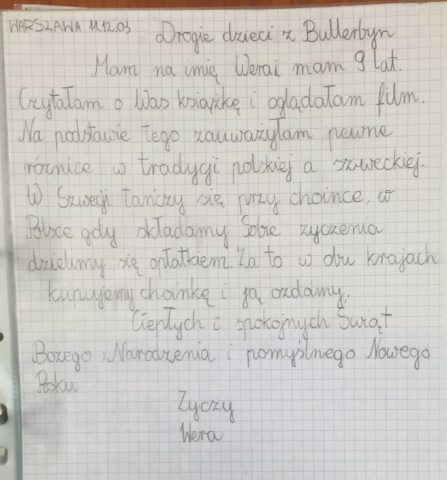 WARSZAWA 11.12.03 Drogie dzieci z Bullerbyn
Mam na imię Wera i mam 9 lat.
Czytałam o Was książkę i oglądałam film.
Na podstawie tego zauważyłam pewne
różnice w tradygi polskiej a szweckiej.
W Szwegi tańczy się przy choince, w
Polsce gdy składamy Sobie życzenia
dzielimy się opłatkiem. Za to w obu krajach
kupujemy choinkę i ją ozdamy.
Ciepłych i spokojnych Świąt
Bożego Narodzenia i pomyślnego Nowego
Roku
Zyczy
Wera